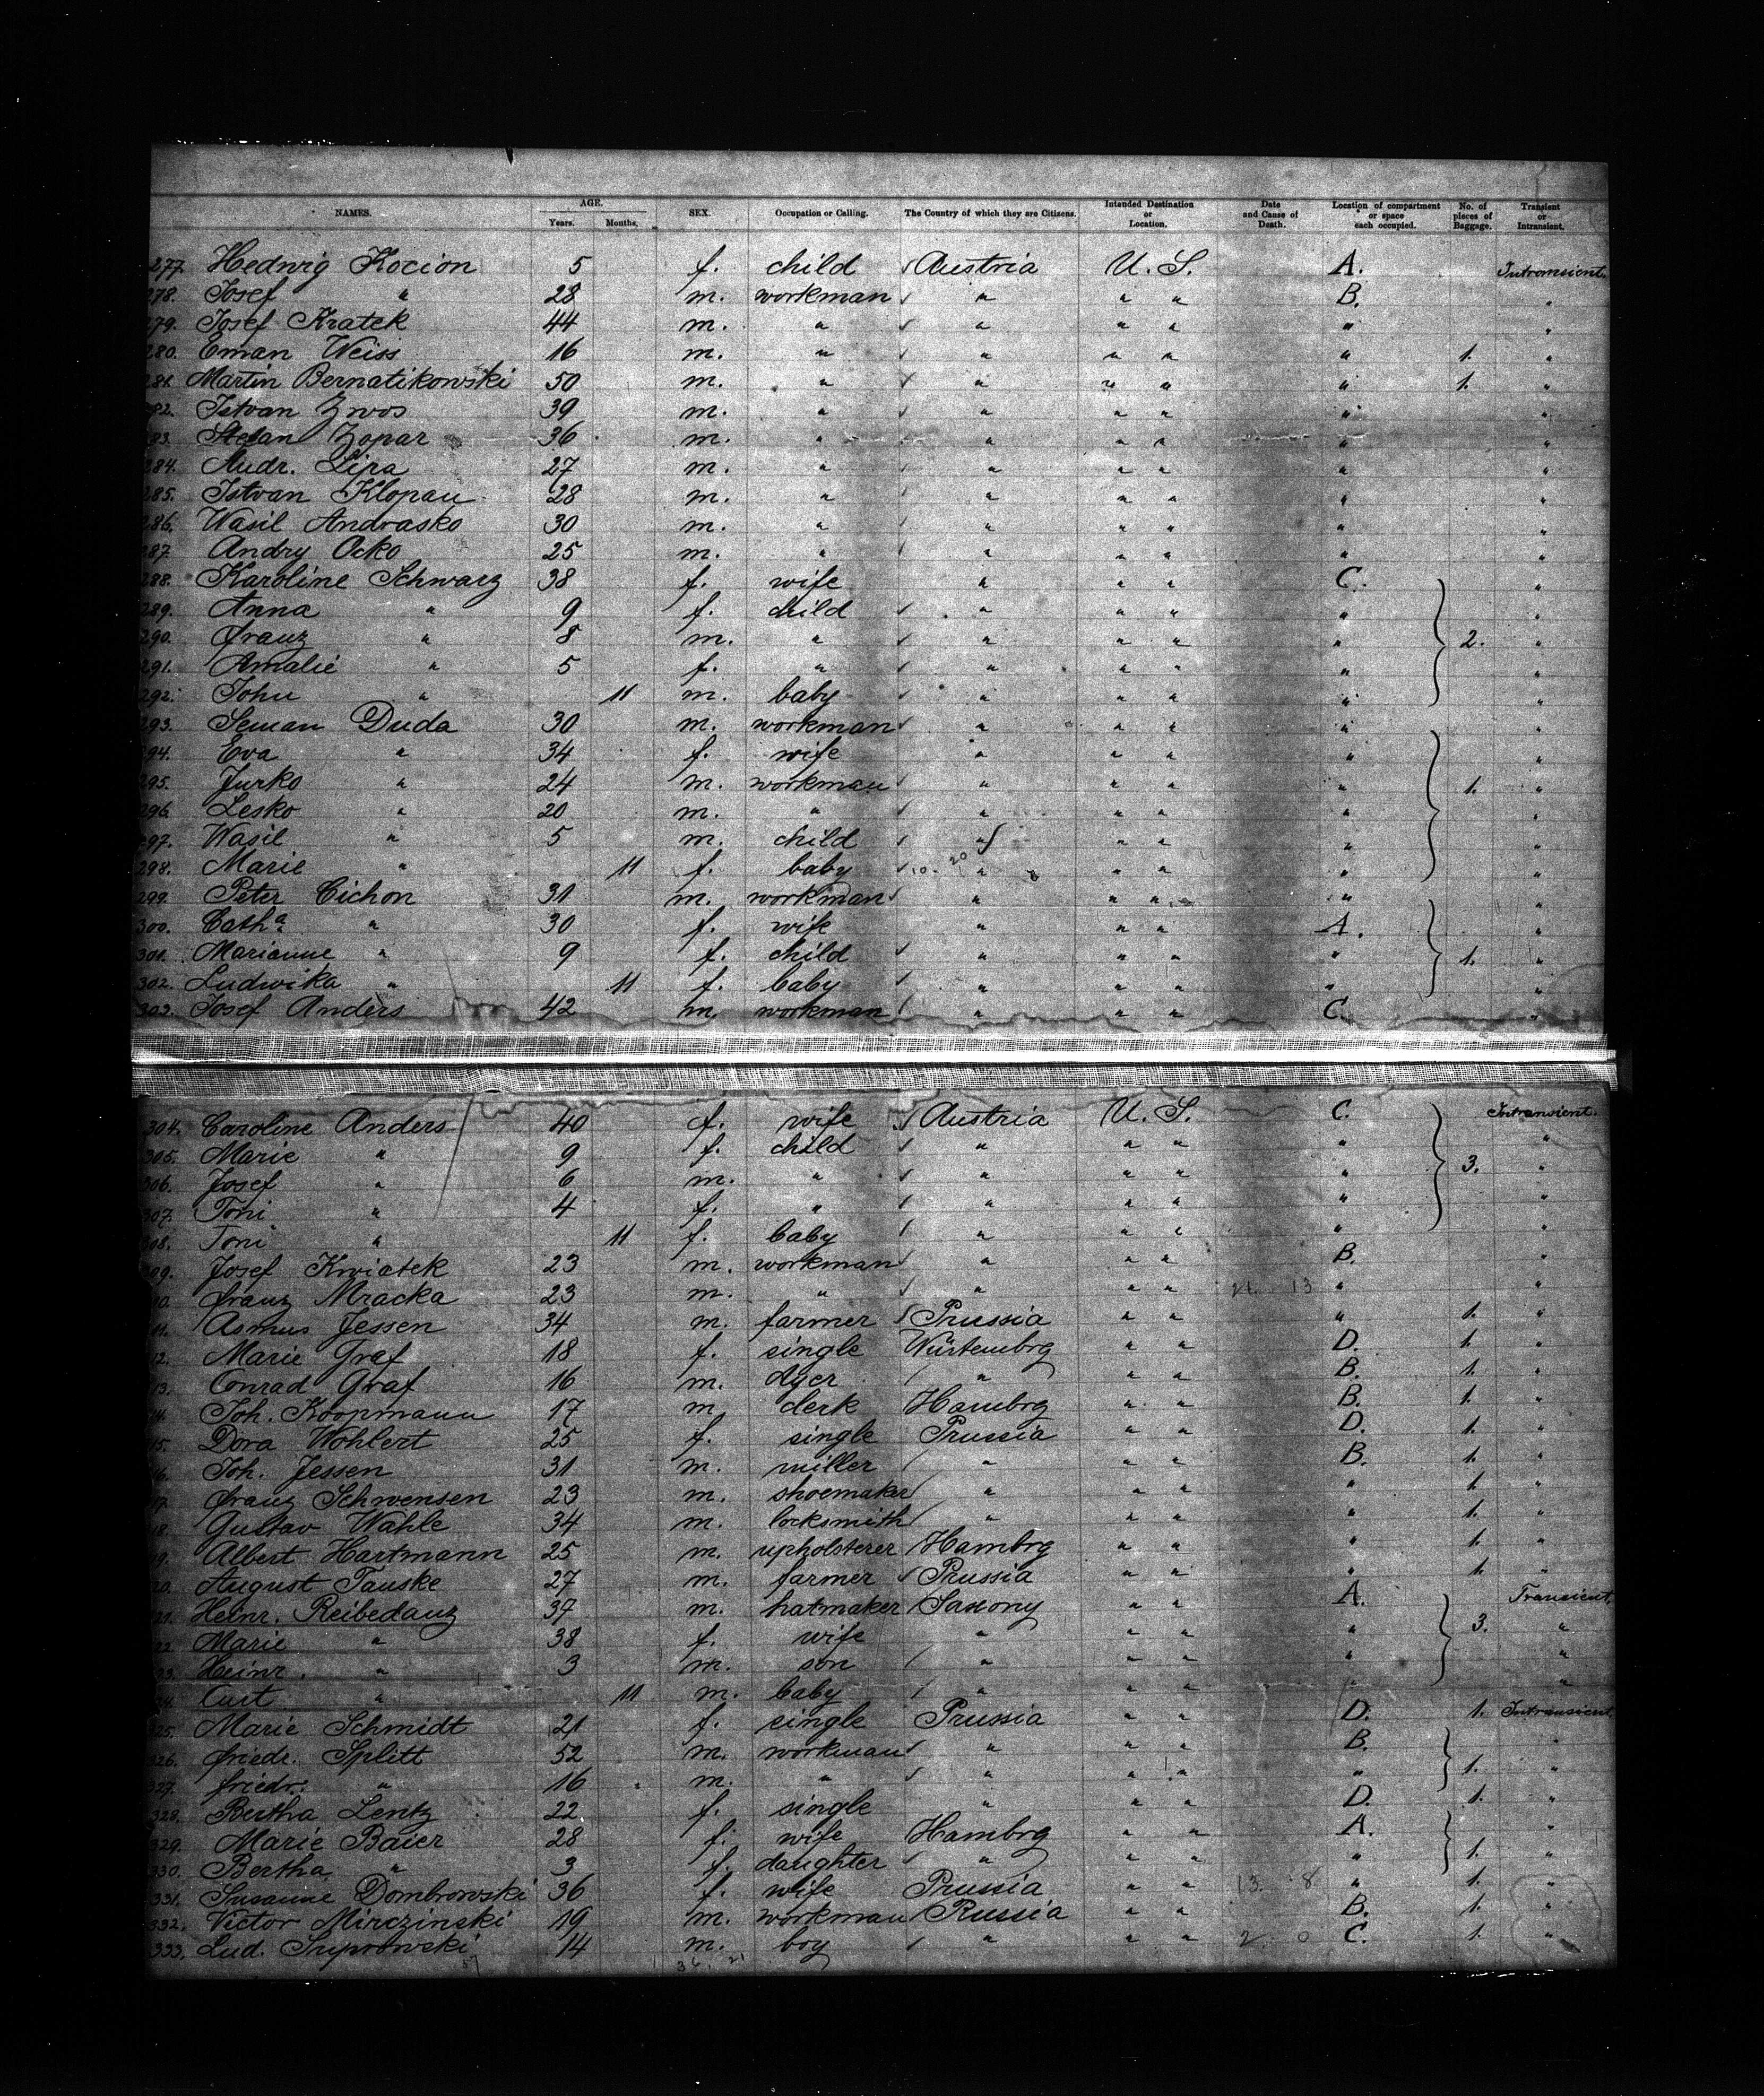 NAMES. AGE. Years. Months. SEX. Occupation or Calling. The Country of which they are Citizens. Intended Destination or Location. Date and Cause of Death. Location of compartment or space each occupied. No. of pieces of Baggage. Transient or Intransient.
277. Hedwig Kocion 5 f. child Austria U. S. A. Intransient.
278. Josef " 28 m. workman " " " B. "
279. Josef Kratek 44 m. " " " " " "
280. Eman Weiss 16 m. " " " " " 1. "
281. Martin Bernatikowski 50 m. " " " " " 1. "
282. Istvan Zwos 39 m. " " " " " "
283. Stefan Zopar 36 m. " " " " " "
284. Andr. Lira 27 m. " " " " " "
285. Istvan Klopau 28 m. " " " " " "
286. Wasil Andrasko 30 m. " " " " " "
287. Andry Ocko 25 m. " " " " " "
288. Karoline Schwarz 38 f. wife " " " C. "
289. Anna " 9 f. child " " " " "
290. Franz " 8 m. " " " " " 2. "
291. Amalie " 5 f. " " " " " "
292. John " 11 m. baby " " " " "
293. Seman Duda 30 m. workman " " " " "
294. Eva " 34 f. wife " " " " "
295. Jurko " 24 m. workman " " " " 1. "
296. Lesko " 20 m. " " " " " "
297. Wasil " 5 m. child " " " " "
298. Marie " 11 f. baby " " " " "
299. Peter Cichon 31 m. workman " " " " "
300. Catha " 30 f. wife " " " A. "
301. Marianne " 9 f. child " " " " 1. "
302. Ludwika " 11 f. baby " " " " "
303. Josef Anders 42 m. workman " " " C. "
304. Caroline Anders 40 f. wife Austria U. S. C. Intransient.
305. Marie " 9 f. child " " " " "
306. Josef " 6 m. " " " " " 3. "
307. Toni " 4 f. " " " " " "
308. Toni " 11 f. baby " " " " "
309. Josef Kwiatek 23 m. workman " " " B. "
10. Franz Mracka 23 m. " " " " " "
11. Asmus Jessen 34 m. farmer Prussia " " " 1. "
12. Marie Graf 18 f. single Würtembrg " " D. 1. "
13. Conrad Graf 16 m. dyer " " " B. 1. "
14. Joh. Koopmann 17 m. clerk Hambrg " " B. 1. "
15. Dora Wohlert 25 f. single Prussia " " D. 1. "
16. Joh. Jessen 31 m. miller " " " B. 1. "
17. Franz Schwensen 23 m. shoemaker " " " " 1. "
18. Gustav Wahle 34 m. locksmith " " " " 1. "
19. Albert Hartmann 25 m. upholsterer Hambrg " " " 1. "
20. August Tauske 27 m. farmer Prussia " " " 1. "
21. Heinr. Reibedanz 37 m. hatmaker Saxony " " A. Transient.
22. Marie " 38 f. wife " " " " 3. "
23. Heinr. " 3 m. son " " " " "
24. Curt " 11 m. baby " " " " "
325. Marie Schmidt 21 f. single Prussia " " D. 1. Intransient.
326. Friedr. Splitt 52 m. workman " " " B. "
327. Friedr. " 16 m. " " " " " 1. "
328. Bertha Lentz 22 f. single " " " D. 1. "
329. Marie Baier 28 f. wife Hambrg " " A. "
330. Bertha " 3 f. daughter " " " " 1. "
331. Susanne Dombrowski 36 f. wife Prussia " " " 1. "
332. Victor Mirczinski 19 m. workman Russia " " B. 1. "
333. Lud. 14 m. boy " " " C. 1. "